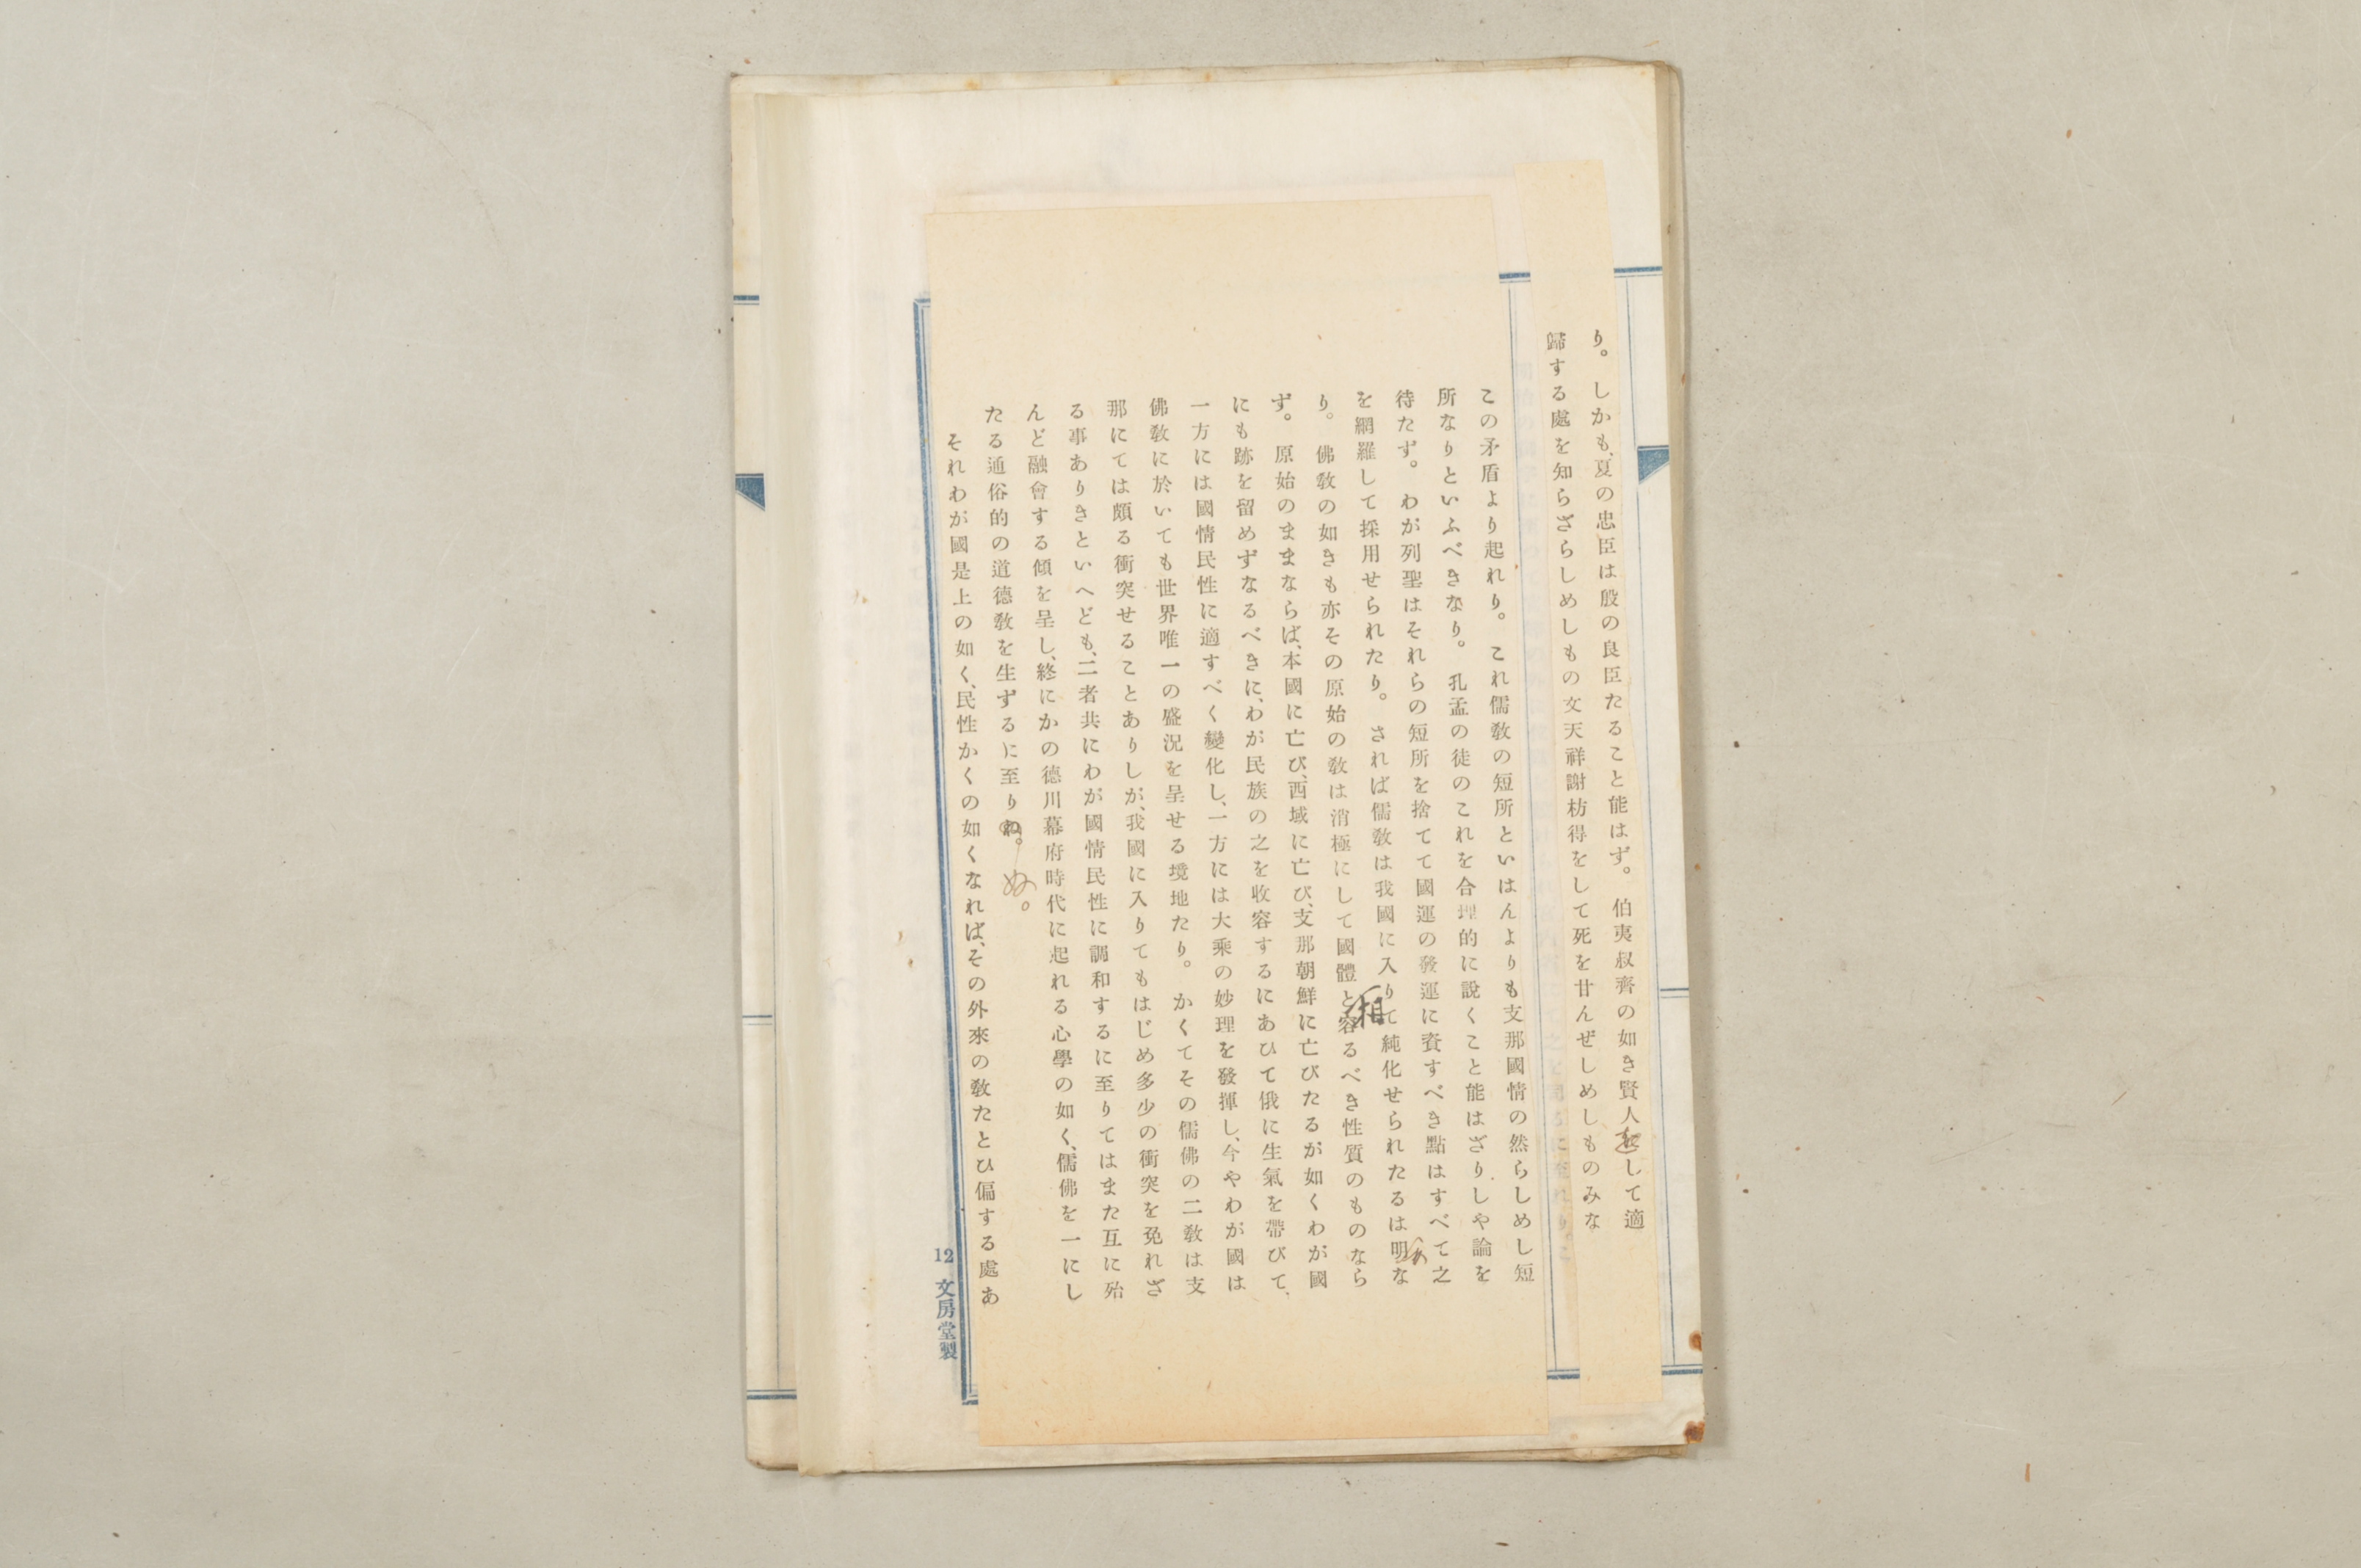 り。しかも、夏の忠臣は殷の良臣たること能はず。伯夷叔齊の如き賢人をして適
歸する處を知らざらしめしもの文天祥謝枋得をして死を甘んぜしめしものみな
この矛盾より起れり。これ儒敎の短所といはんよりも支那國情の然らしめし短
所なりといふべきなり。孔孟の徒のこれを合理的に說くこと能はざりしや論を
待たず。わが列聖はそれらの短所を捨てて國運の發運に資すべき點はすべて之
を網羅して採用せられたり。されば儒敎は我國に入りて純化せられたるは明な
り。佛敎の如きも亦その原始の敎は消極にして國體と相容るべき性質のものなら
ず。原始のままならば、本國に亡び、西域に亡び、支那朝鮮に亡びたるが如くわが國
にも跡を留めずなるべきに、わが民族の之を收容するにあひて俄に生氣を帶びて、
一方には國情民性に適すべく變化し、一方には大乘の妙理を發揮し、今やわが國は
佛敎に於いても世界唯一の盛況を呈せる境地たり。かくてその儒佛の二敎は支
那にては頗る衝突せることありしが、我國に入りてもはじめ多少の衝突を免れざ
る事ありきといへども、二者共にわが國情民性に調和するに至りてはまた互に殆
んど融會する傾を呈し、終にかの德川幕府時代に起れる心學の如く、儒佛を一にし
たる通俗的の道德敎を生ずるに至りぬ。
ぬ。
それわが國是上の如く、民性かくの如くなれば、その外來の敎たとひ偏する處あ
12 文房堂製